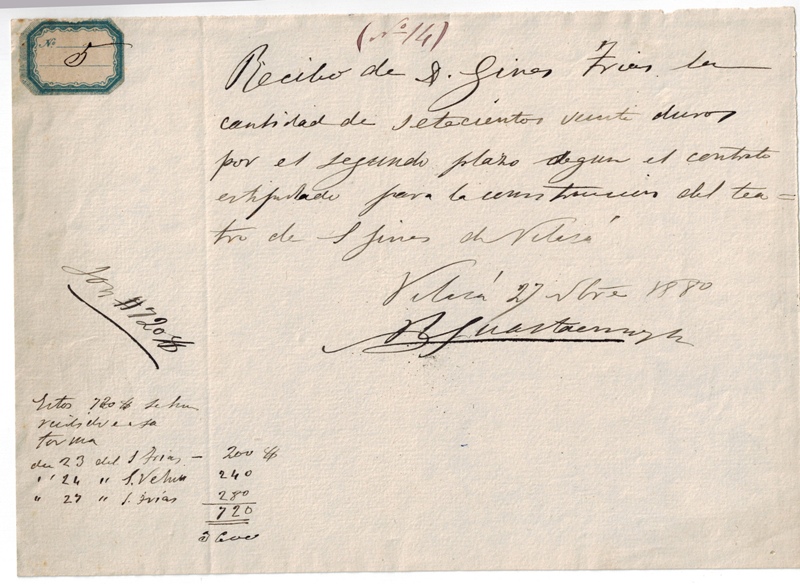 Nº 5
(Nº 14)
Recibo de D. Gines Frias la
cantidad de setecientos veinte duros
por el segundo plazo segun el contrato
estipulado para la construccion del tea=
tro de S Gines de Vilasá
Vilasá 27 Nbre 1880
Son #720#
Estos 720 # se han
recibido en esta
forma
dia 23 del S Frias – 200 #
" 24 " S. 240
" 27 " S. Frias 280
720